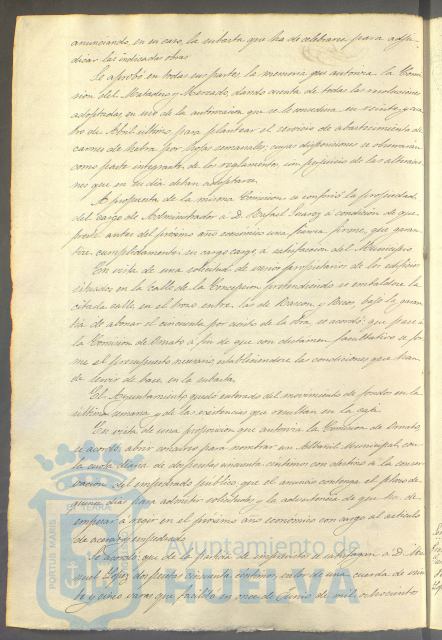 anunciando, en su caso, la subasta que ha de celebrarse para adju-
dicar las indicadas obras
Se aprobó en todas sus partes la memoria que autoriza la Comi-
sion del Matadero y Mercado, dando cuenta de todas las resoluciones
adoptadas, en uso de la autorizacion que se le concediera en veinte y cua-
tro de Abril último para plantear el servicio de abastecimiento de
carnes de hebra por bolas semanales, cuyas disposiciones se observaran
como parte integrante de los reglamentos sin perjuicio de las alteracio-
nes que en su dia deban adoptarse.
A propuesta de la misma Comision se confirió la propiedad
del cargo de Administrador a D. Rafael Suarez á condicion de que
preste antes del próximo año económico una fianza firme, que garan-
tice cumplidamente su cargo, á satisfaccion del Municipio.
En vista de una solicitud de varios propietarios de los edificios
situados en la calle de la Concepcion pretendiendo se embaldose la
citada calle, en el trozo entre las de Rascon y Ricos, bajo la garan-
tia de abonar el cincuenta por ciento de la obra, se acordó: que pase á
la Comision de Ornato á fin de que con dictamen facultativo se for-
me el presupuesto necesario estableciendose las condiciones que han
de servir de base en la subasta.
El Ayuntamiento quedó enterado del movimiento de fondos en la
última semana y de las existencias que resultan en la caja.
En vista de una proposicion que autoriza la Comision de Ornato,
se acordó, abrir concurso para nombrar un Albañil Municipal, con
la cuota diaria de dos pesetas cincuenta centimos con destino á la conser-
vacion del empedrado público que el anuncio contenga el plazo de
quince dias para admitir solicitudes y la advertencia de que ha de
empezar á regir en el próximo año economico con cargo al artículo
de aceras y empedrado.
Se acordó: que de la partida de imprevistos se satisfagan á D. Ma-
nuel Lopez dos pesetas cincuenta centimos, valor de una cuerda de vein-
te y cinco varas que facilitó en once de Junio de mil ochocientos
PORTUS MARIS
Ayuntamiento de
HUELVA